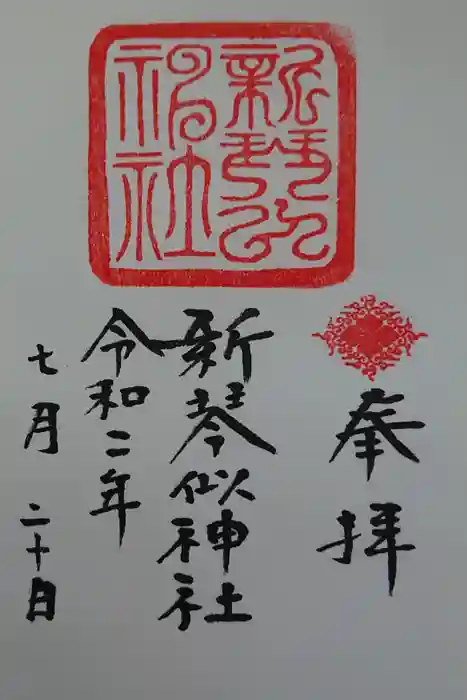 奉拝
新琴似神社
令和二年
七月二十日
新琴似
神社